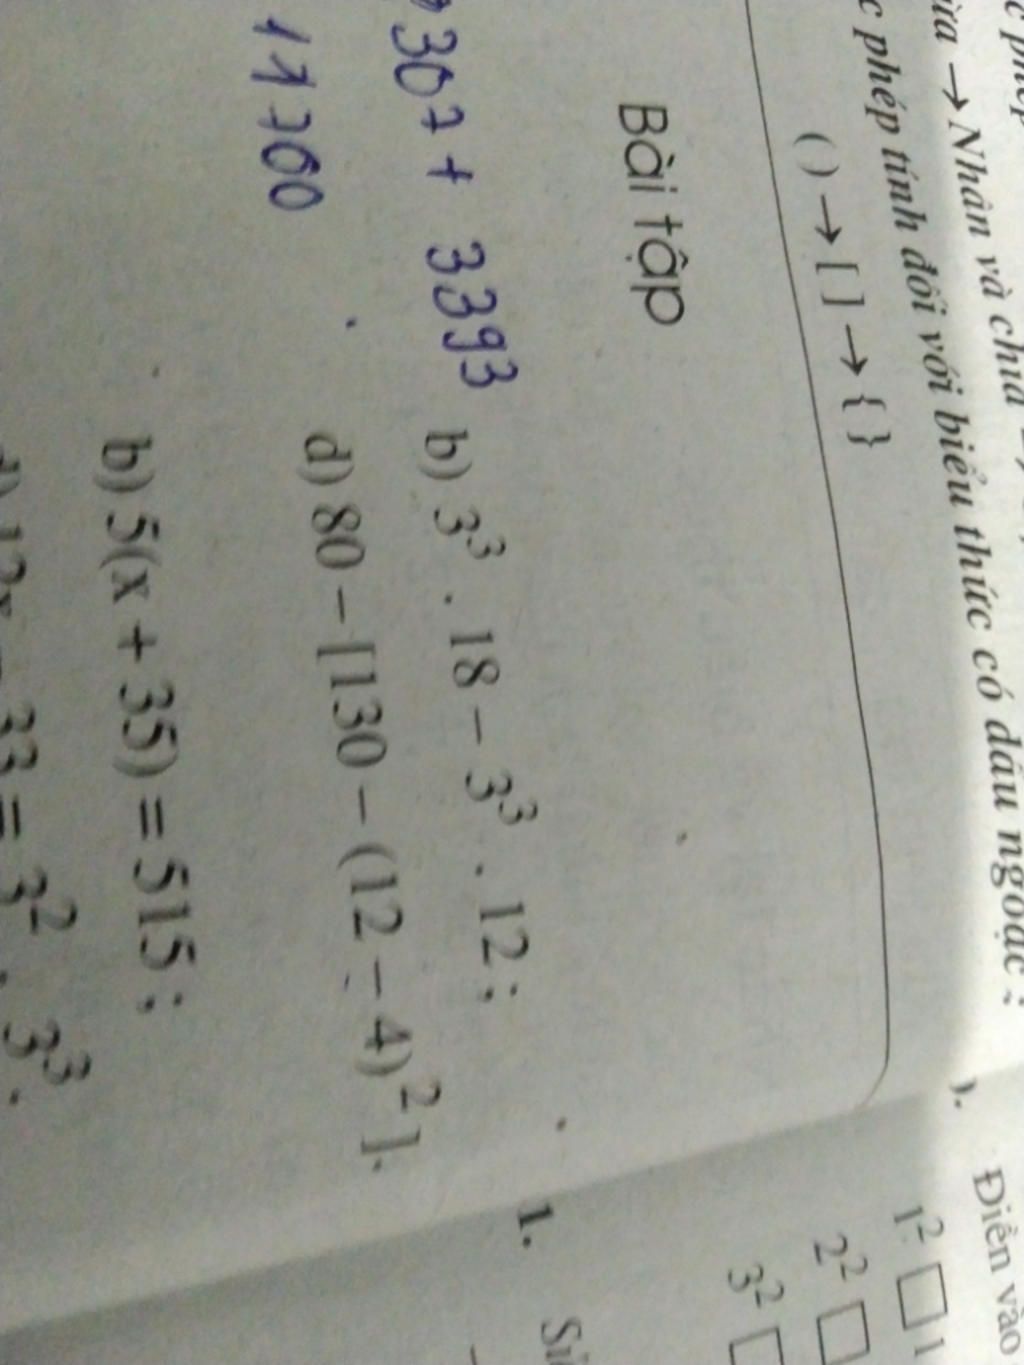 Nhân và chia
phép tính đối với biểu thức có dấu ngoặc :
( ) → [ ] → { }
Bài tập
307 + 3393
b) 3³ . 18 – 3³ . 12 ;
11700
d) 80 – [130 – (12 – 4)² ].
b) 5(x + 35) = 515 ;
33 = 3² . 3³.
).
Điền vào
1² □ 1
2² □
3² □
1.